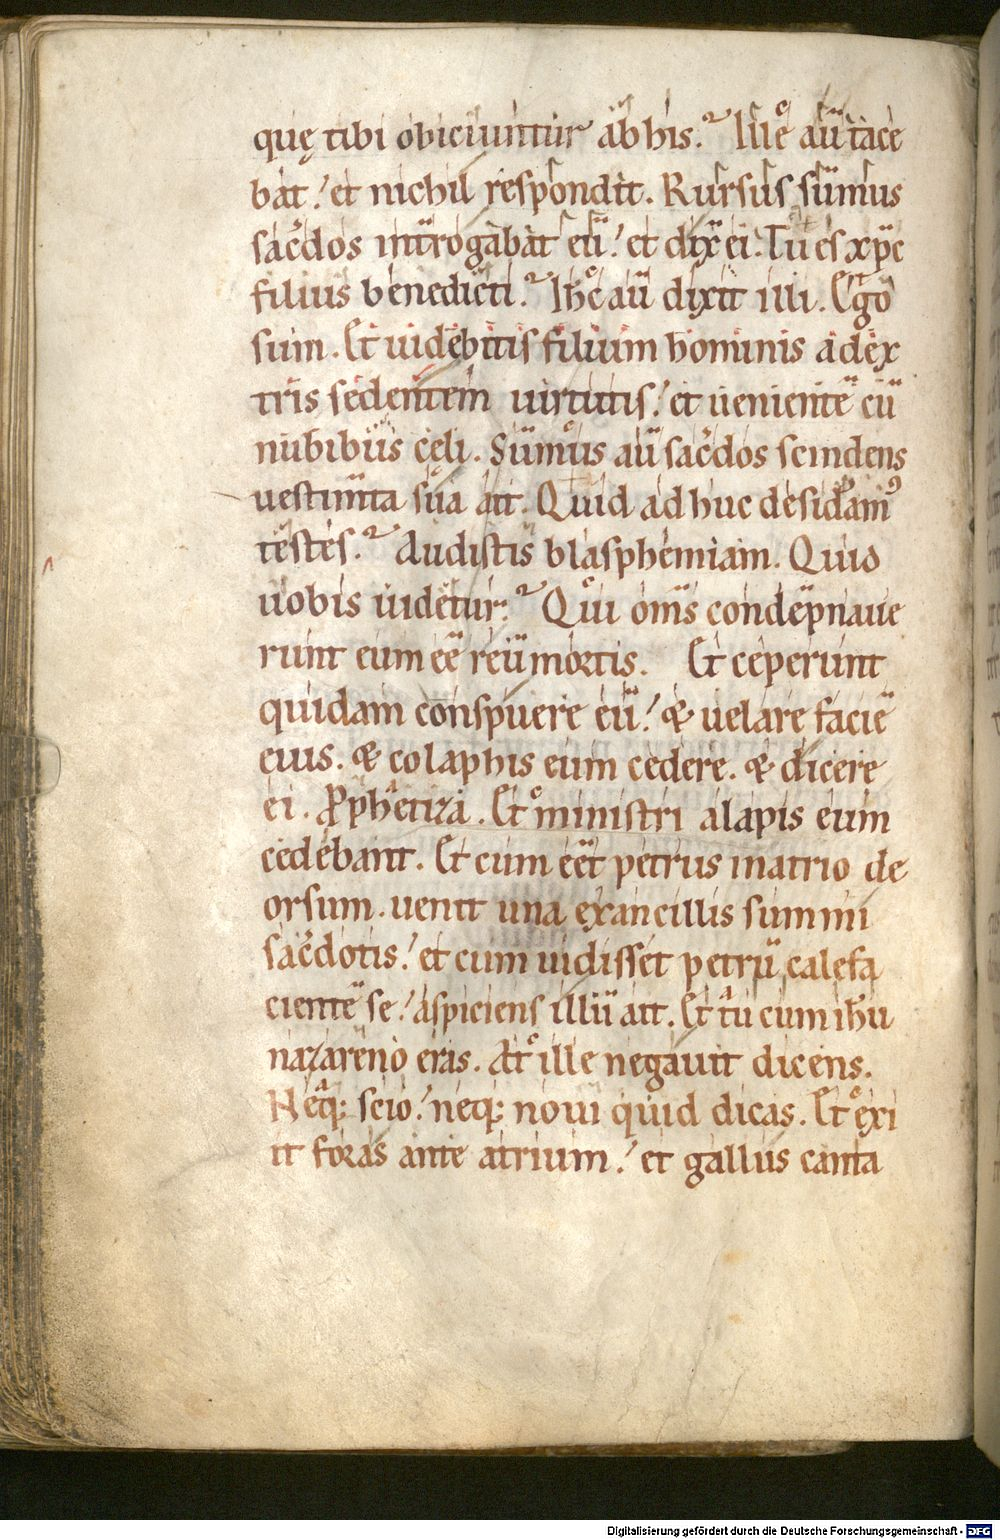 quę tibi obiciuntur ab his. Ille aū tace
bat. et nichil respondit. Rursus sūmus
sac̄dos int̄rogabat eū. et dix̄ ei. Tu es xp̄c
filius benedicti. Ih̄c aū dixit illi. Ego
sum. Et uidebitis filium hominis adex
tris sedentem uirtutis. et uenientē cū
nubibus celi. Sūmus aū sac̄dos scindens
uestimta sua ait. Quid adhuc desidam᾽
testes. Audistis blasphemiam. Quid
uobis uidetur. Qui om̄s condepnaue
runt eum eē reū mortis. Et ceperunt
quidam conspuere eū. & uelare faciē
eius. & colaphis eum cedere. & dicere
ei. Ꝓphetiza. Et ministri alapis eum
cedebant. Et cum eēt petrus inatrio de
orsum. uenit una exancillis summi
sac̄dotis. et cum uidisset petrū calefa
cientē se. aspiciens illū ait. Et tu cum ih̄u
nazareno eras. At ille negauit dicens.
Neq; scio. neq; noui quid dicas. Et exi
it foras ante atrium. et gallus canta
Digitalisierung gefördert durch die Deutsche Forschungsgemeinschaft - DFG